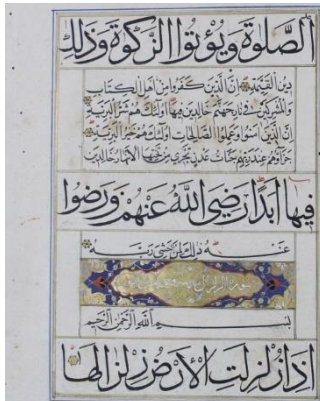 الصلوة ويؤتوا الزكوة وذلك
دين القيمة ان الذين كفروا من اهل الكتاب
والمشركين في نار جهنم خالدين فيها اولئك هم شر البرية
ان الذين امنوا وعملوا الصالحات اولئك هم خير البرية
جزاؤهم عند ربهم جنات عدن تجري من تحتها الانهار خالدين
فيها ابدا رضي الله عنهم ورضوا
عنه ذلك لمن خشي ربه
بسم الله الرحمن الرحيم
اذا زلزلت الارض زلزالها